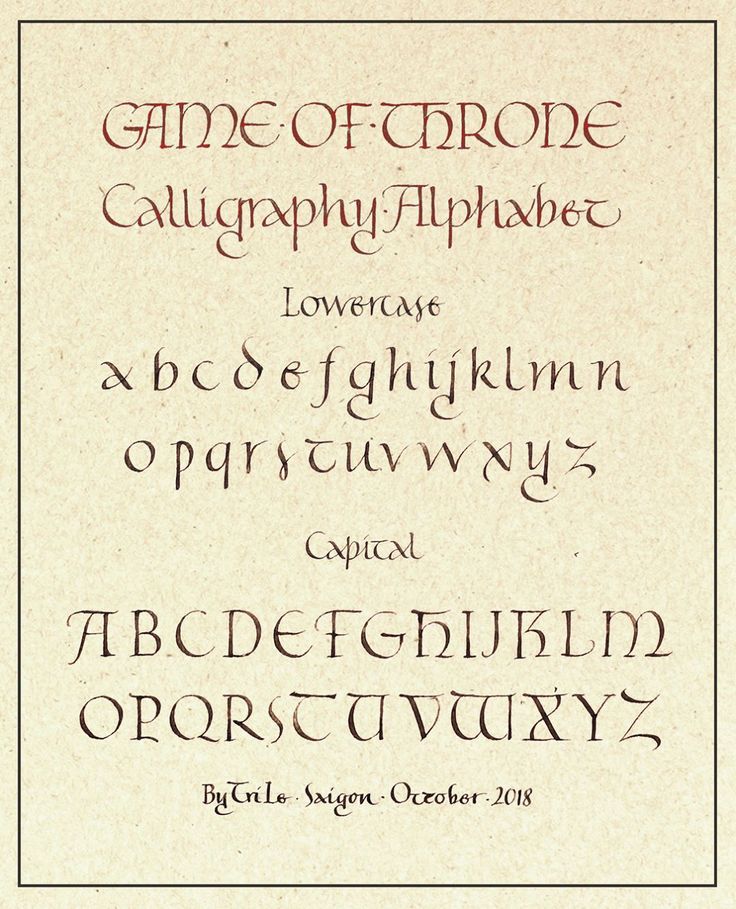 GAME·OF·THRONE
Calligraphy·Alphabet
Lowercase
a b c d e f g h i j k l m n
o p q r s t u v w x y z
Capital
A B C D E F G H I J K L M
O P Q R S T U V W X Y Z
By Tri Le · Saigon · October · 2018